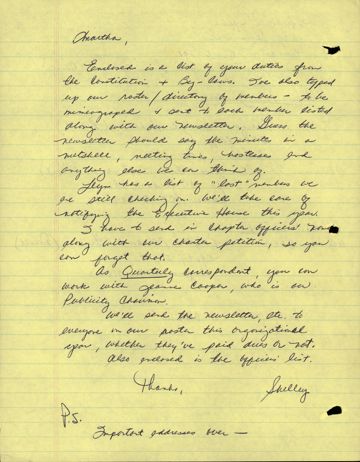 Martha,
Enclosed is a list of your duties from
the Constitution + By-laws. I've also typed
up our roster/directory of members - to be
mimeographed & sent to each member listed
along with our newsletter. Guess the
newsletter should say the minutes in a
nutshell, meeting times, hostesses and
anything else we can think of.
has a list of "lost" members we
are still checking on. We'll take care of
notifying the Executive House this year.
I have to send in chapter officers' names
along with our charter petition, so you
can forget that.
As Quarterly correspondent, you can
work with Jeanie Cooper, who is our
Publicity Chairman.
We'll send the newsletter, etc. to
everyone on our roster this organizational
year, whether they've paid dues or not.
Also enclosed is the officers' list.
Thanks,
Shelley
P.S.
Important addresses over —